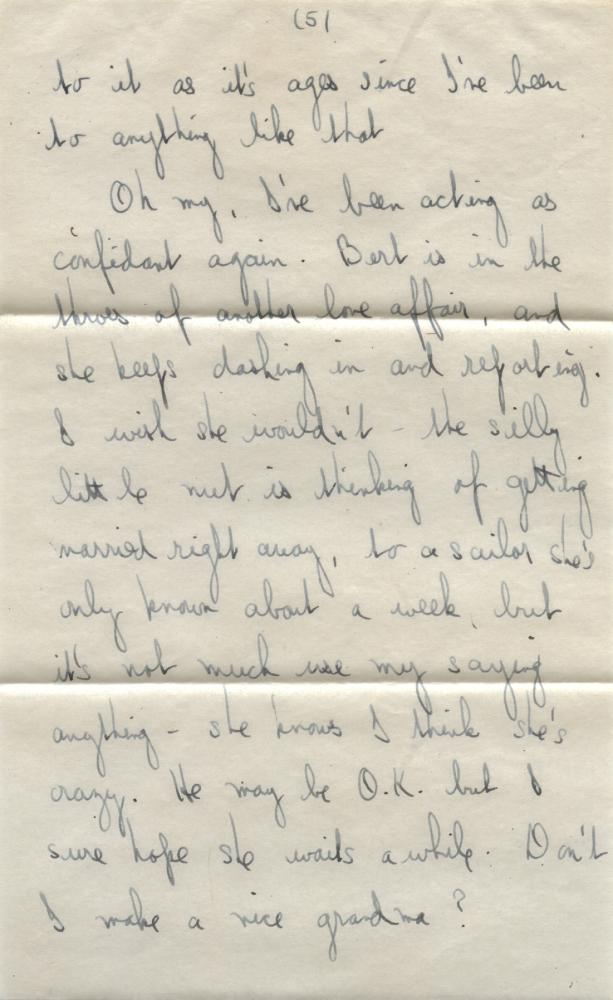 (5)
to it as it's ages since I've been
to anything like that
Oh my, I've been acting as
confidant again. Bert is in the
throes of another love affair, and
she keeps dashing in and reporting.
I wish she wouldn't - the silly
little nut is thinking of getting
married right away, to a sailor she's
only known about a week, but
it's not much use my saying
anything - she knows I think she's
crazy. He may be O.K. but I
sure hope she waits awhile. Don't
I make a nice grandma?